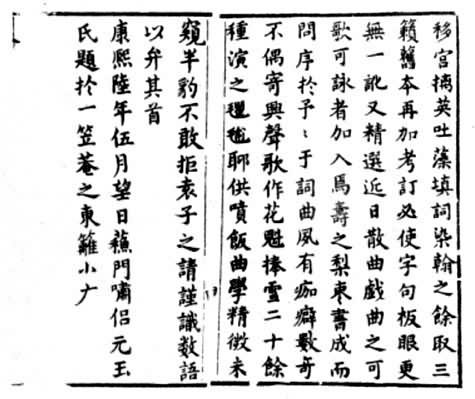 移宮摛英吐藻填詞染翰之餘取三
籟舊本再加考訂必使字句板眼更
無一訛又精選近日散曲戲曲之可
歌可詠者加入焉壽之梨棗書成而
問序於予〻于詞曲夙有痂癖數奇
不偶寄興聲歌作花魁捧雪二十餘
種演之氍毹聊供噴飯曲學精微未
窺半豹不敢拒袁子之請謹識數語
以弁其首
康熙陸年伍月望日蘓門嘯侶元玉
氏題於一笠菴之東籬小广